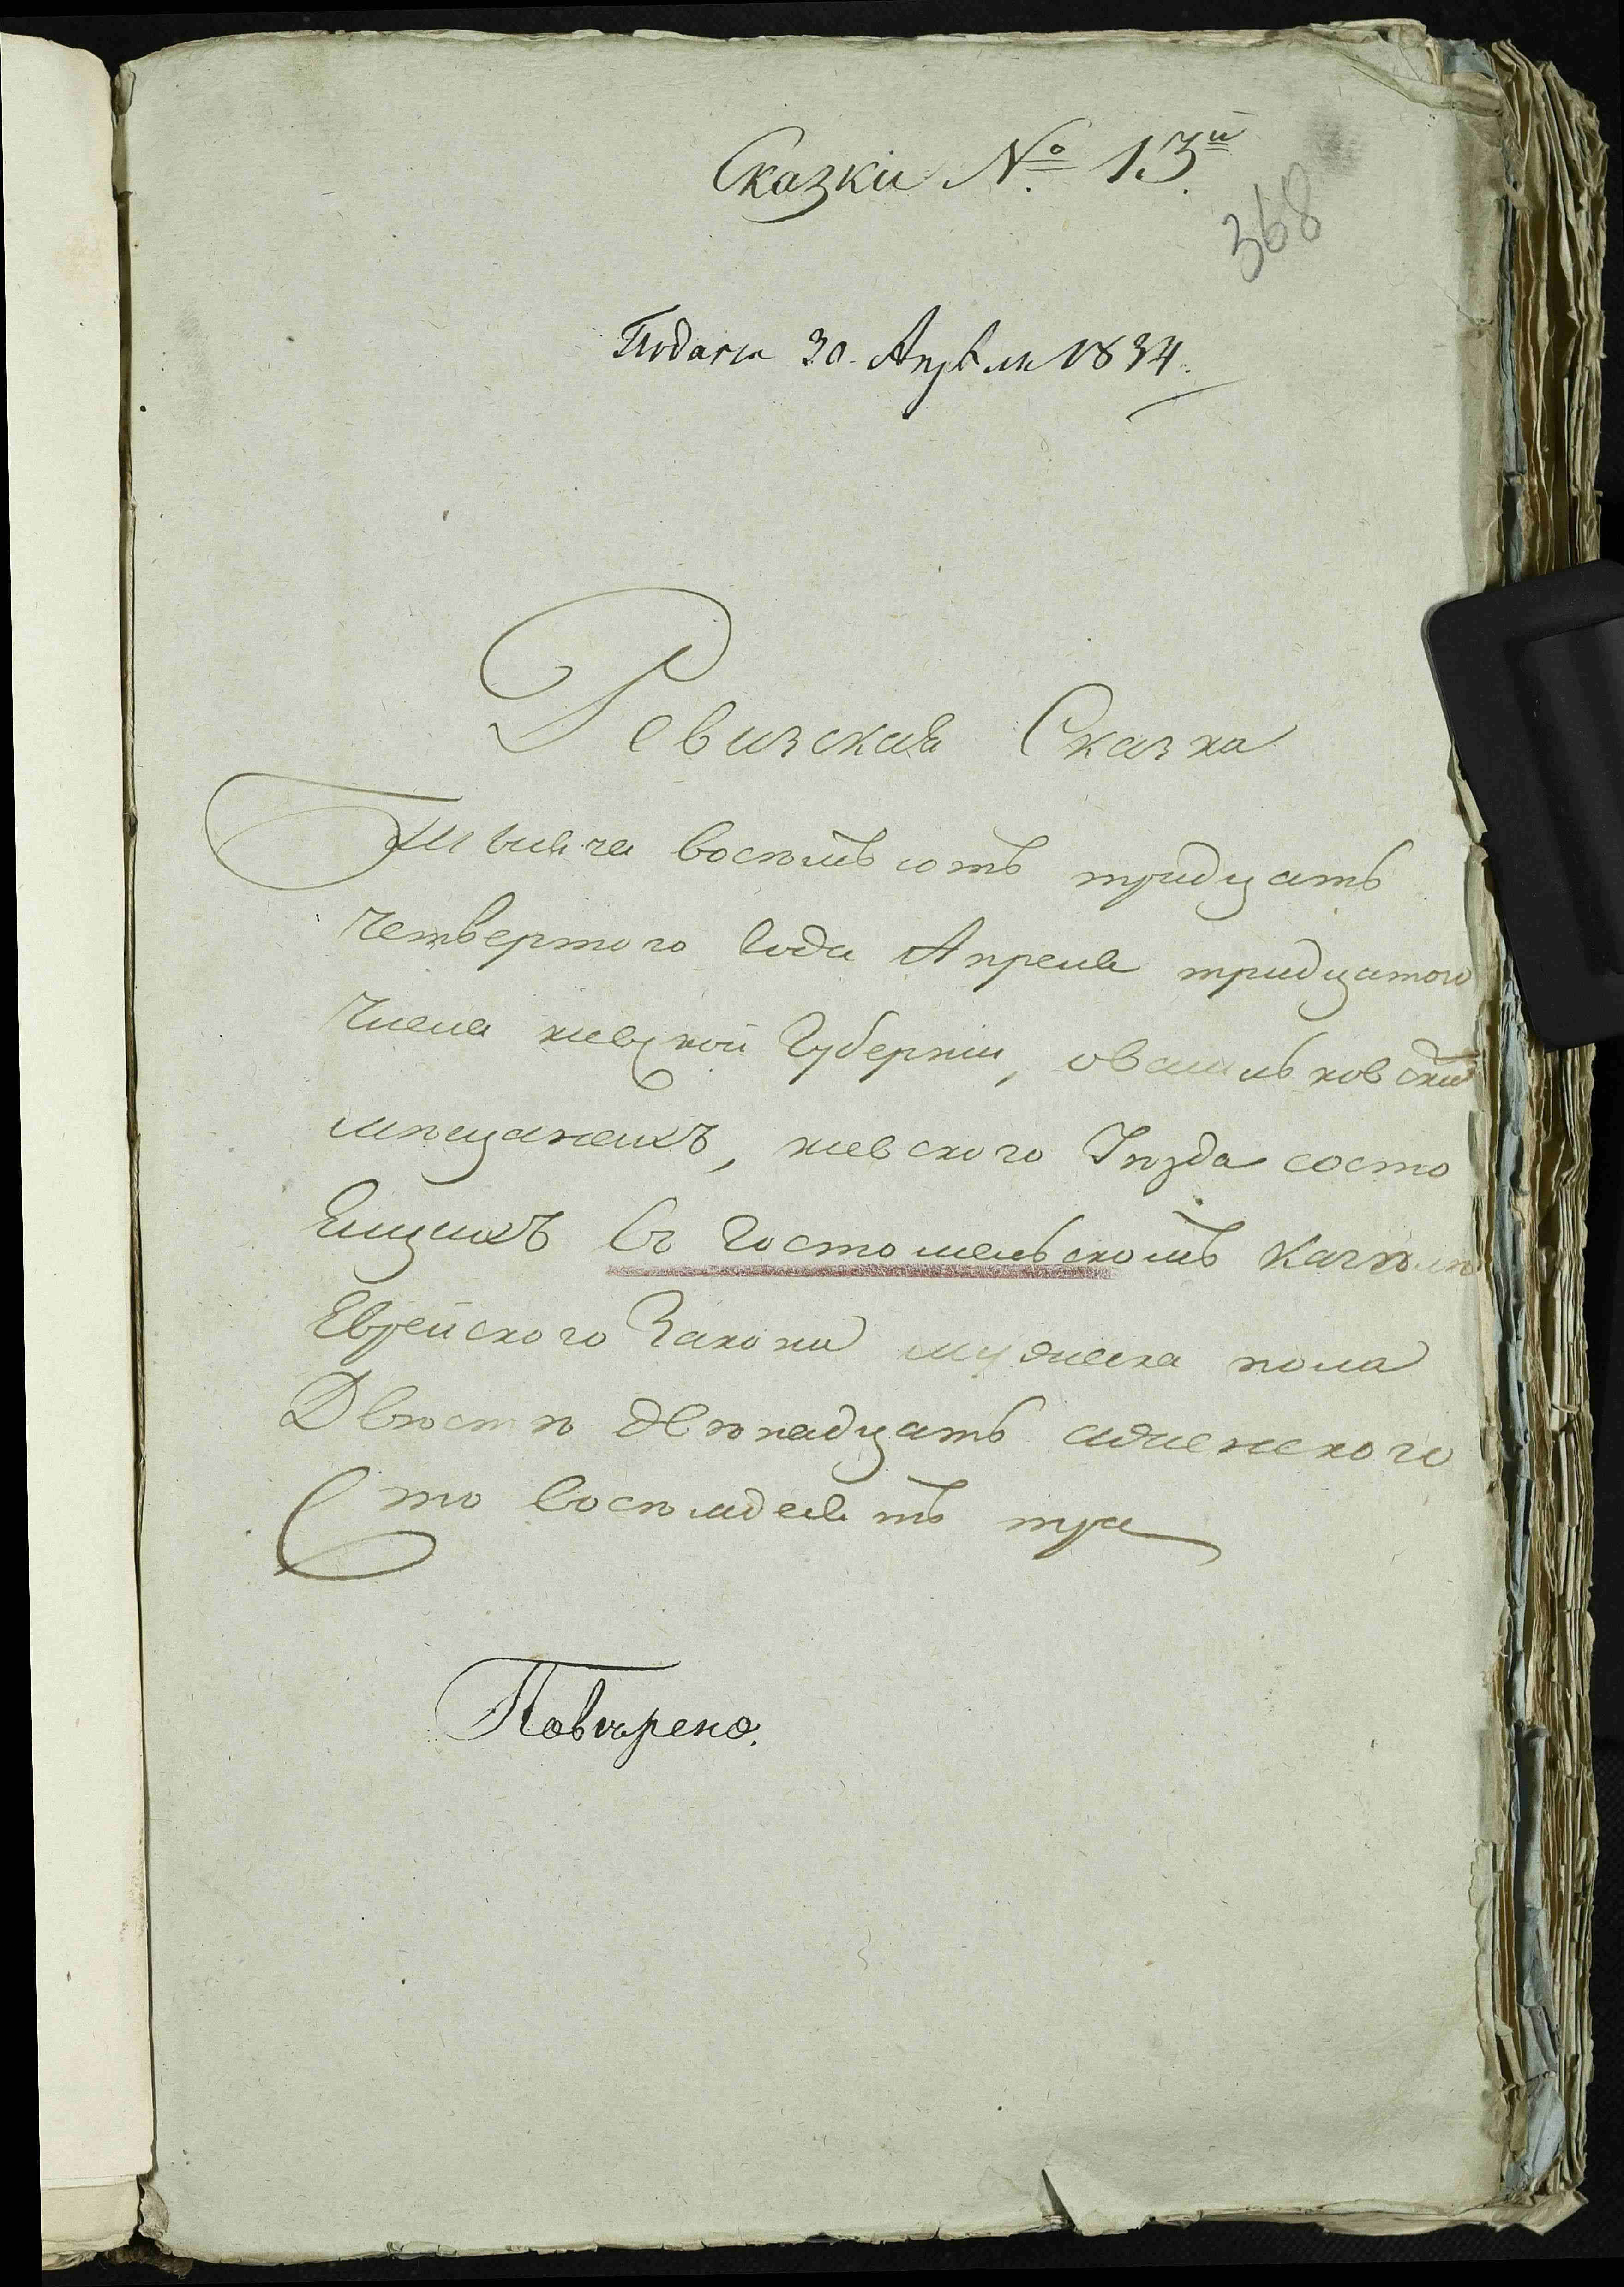 Сказки №. 13й
368
Подана 30. Апрѣля 1834.
Ревизская Сказка
Тысяча восѣмь сотъ тридцать
четвертого Года Апреля тридцатого
Числа киевской Губернии, овасильковских
мѣщанехъ, киевского Уѣзда состо
Ещихъ Въ Гостомельскомъ Кагалѣ
Еврейского Закона мужеска пола
Двѣстѣ двѣнадцать аженского
Сто восѣмдесять три
Повѣрено.